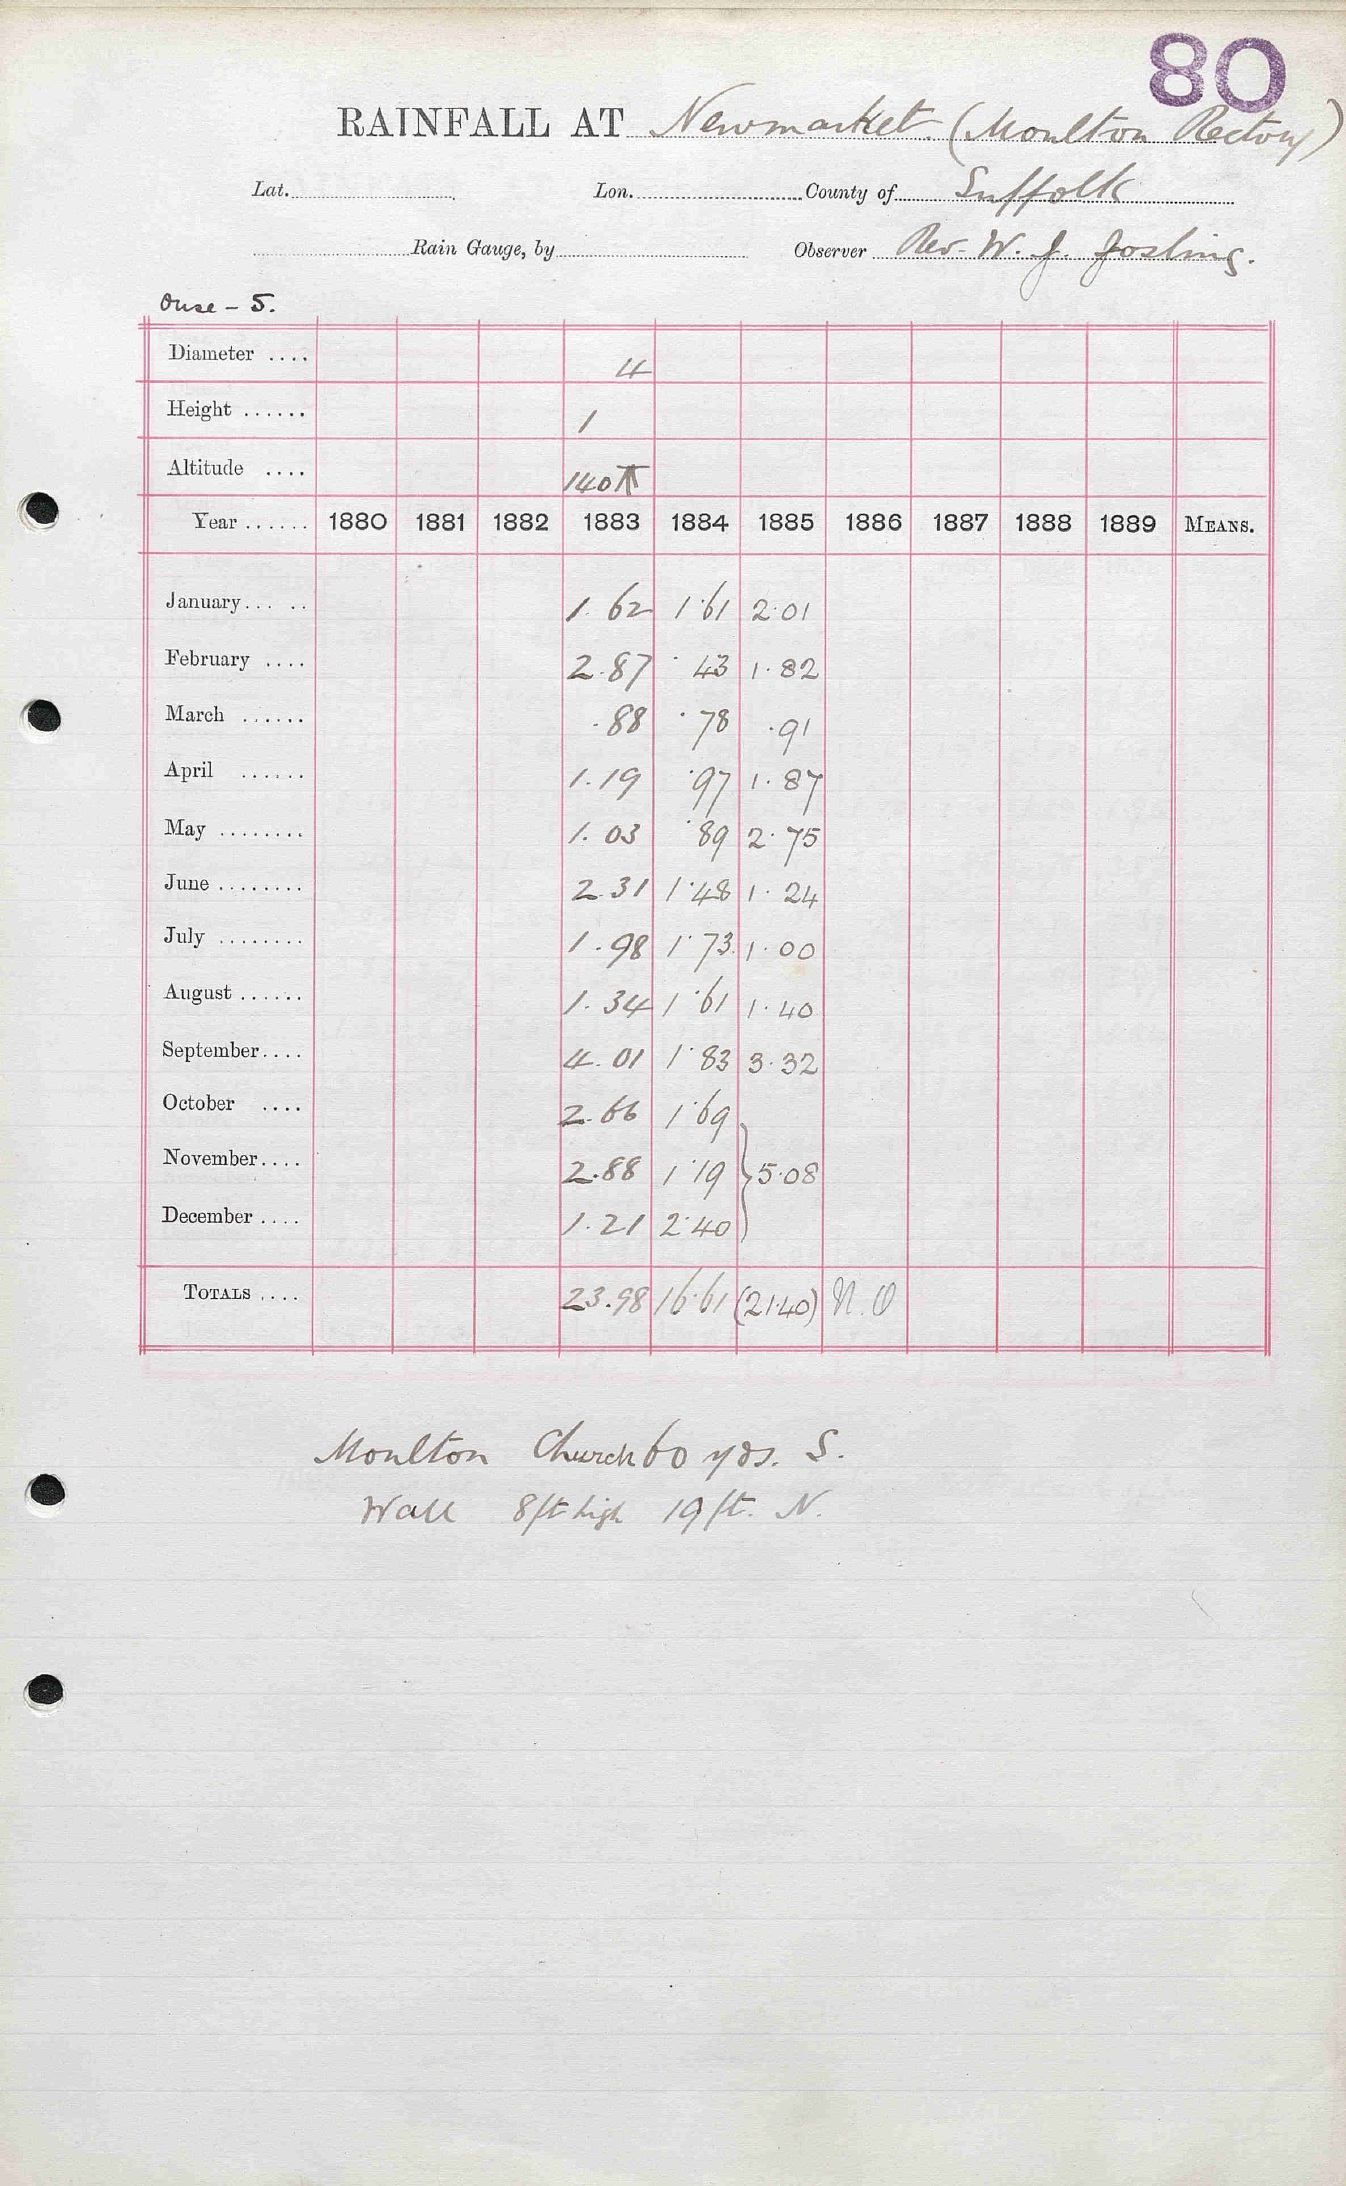 80
RAINFALL AT Newmarket. (Moulton Rectory)
Lat. Lon. County of Suffolk
Rain Gauge, by Observer Rev. W. J. Josling.
Ouse - 5.
Diameter .... 4
Height ...... 1
Altitude .... 140
Year ...... 1880 1881 1882 1883 1884 1885 1886 1887 1888 1889 MEANS.
January... .. 1.62 1.61 2.01
February .... 2.87 .43 1.82
March ...... .88 .78 .91
April ...... 1.19 .97 1.87
May ........ 1.03 .89 2.75
June ........ 2.31 1.48 1.24
July ........ 1.98 1.73 1.00
August ...... 1.34 1.61 1.40
September.... 4.01 1.83 3.32
October .... 2.66 1.69
November.... 2.88 1.19 } 5.08
December .... 1.21 2.40
TOTALS .... 23.98 16.61 (21.40) N.O
Moulton Church 60 yds. S.
Wall 8ft high 19 ft. N.